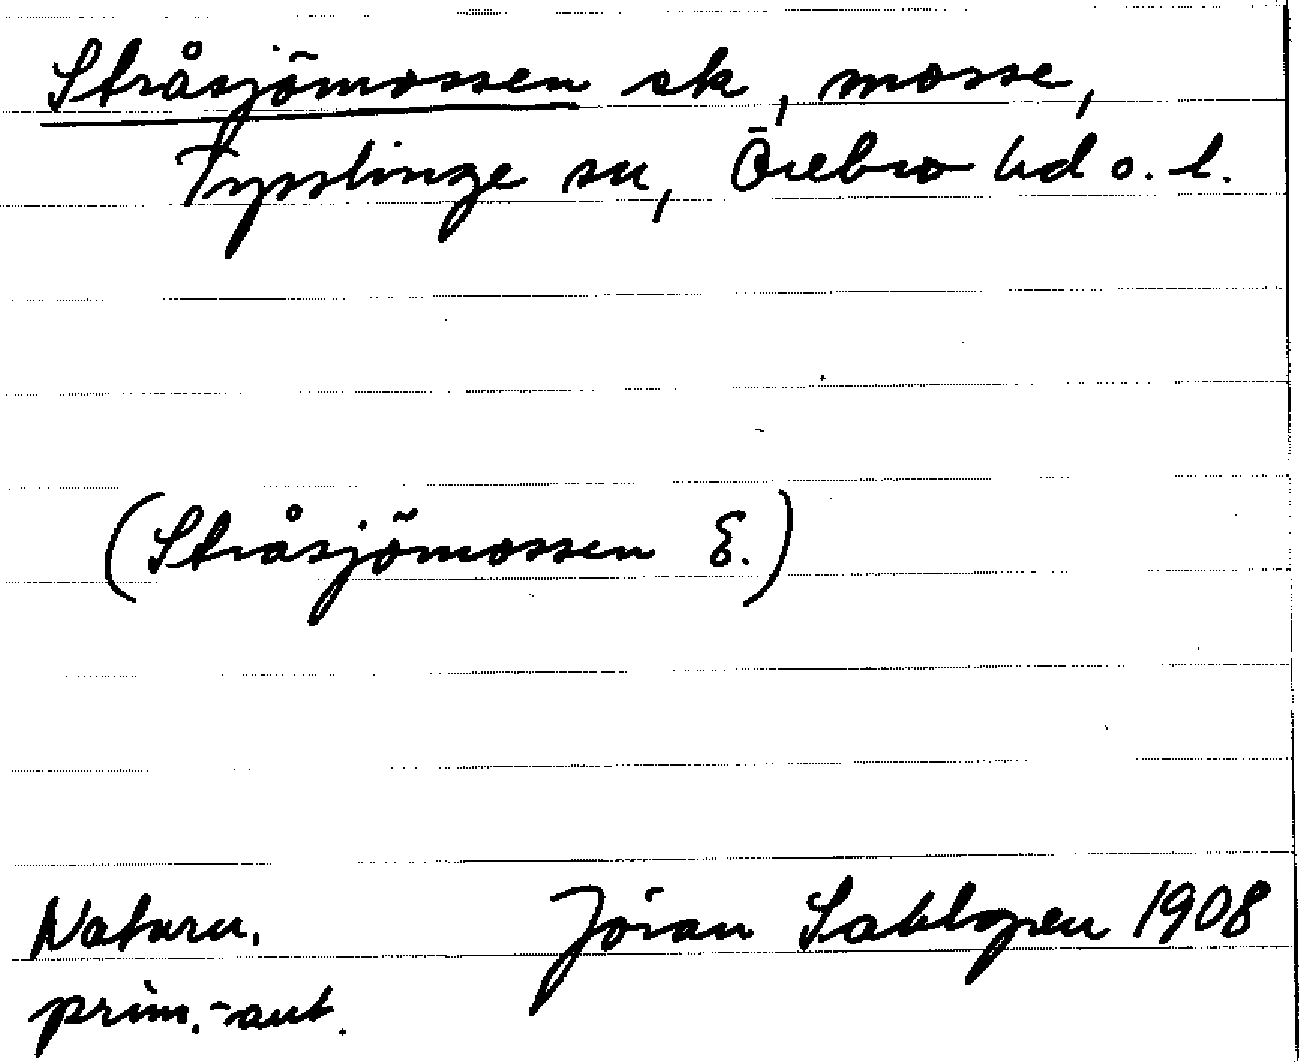 Stråsjömossen sk, mosse,
Tysslinge sn, Örebro hd o. l.
(Stråsjömossen E.)
Naturn. Jöran Sahlgren 1908
prim.-ant.